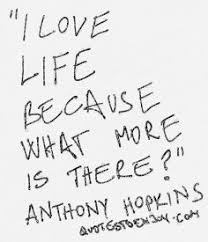 "I LOVE
LIFE
BECAUSE
WHAT MORE
IS THERE?"
ANTHONY HOPKINS
QUOTESTOENJOY.COM